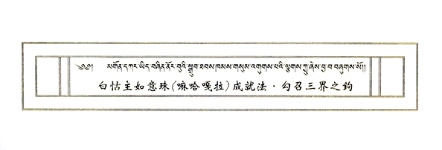 ༄༅། མགོན་དཀར་ཡིད་བཞིན་ནོར་བུའི་སྒྲུབ་ཐབས་ཁམས་གསུམ་འགུགས་པའི་ལྕགས་ཀྱུ་ཞེས་བྱ་བ་བཞུགས་སོ།།
白怙主如意珠(嘛哈嘎拉)成就法·勾召三界之鈎